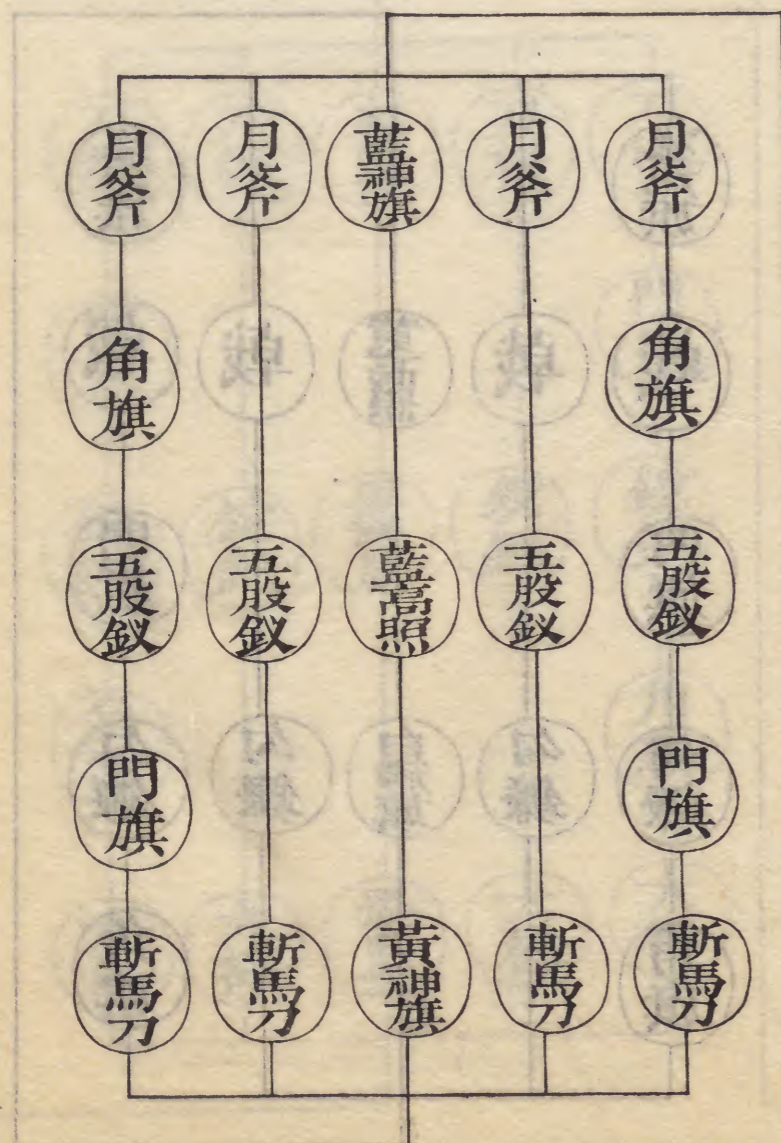 月斧
角旗
五股釵
門旗
斬馬刀
月斧
五股釵
斬馬刀
藍神旗
藍高照
黃神旗
月斧
五股釵
斬馬刀
月斧
角旗
五股釵
門旗
斬馬刀